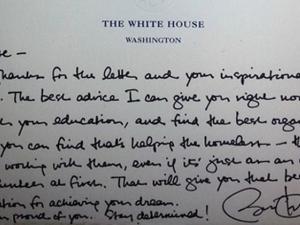 THE WHITE HOUSE
WASHINGTON
se -
Thanks for the letter and your inspirational
. The best advice I can give you right now
your education, and find the best orga
you can find that's helping the homeless - th
working with them, even if it's just as an
unteer at first. That will give you that best
ation for achieving your dream.
m proud of you. Stay determined!